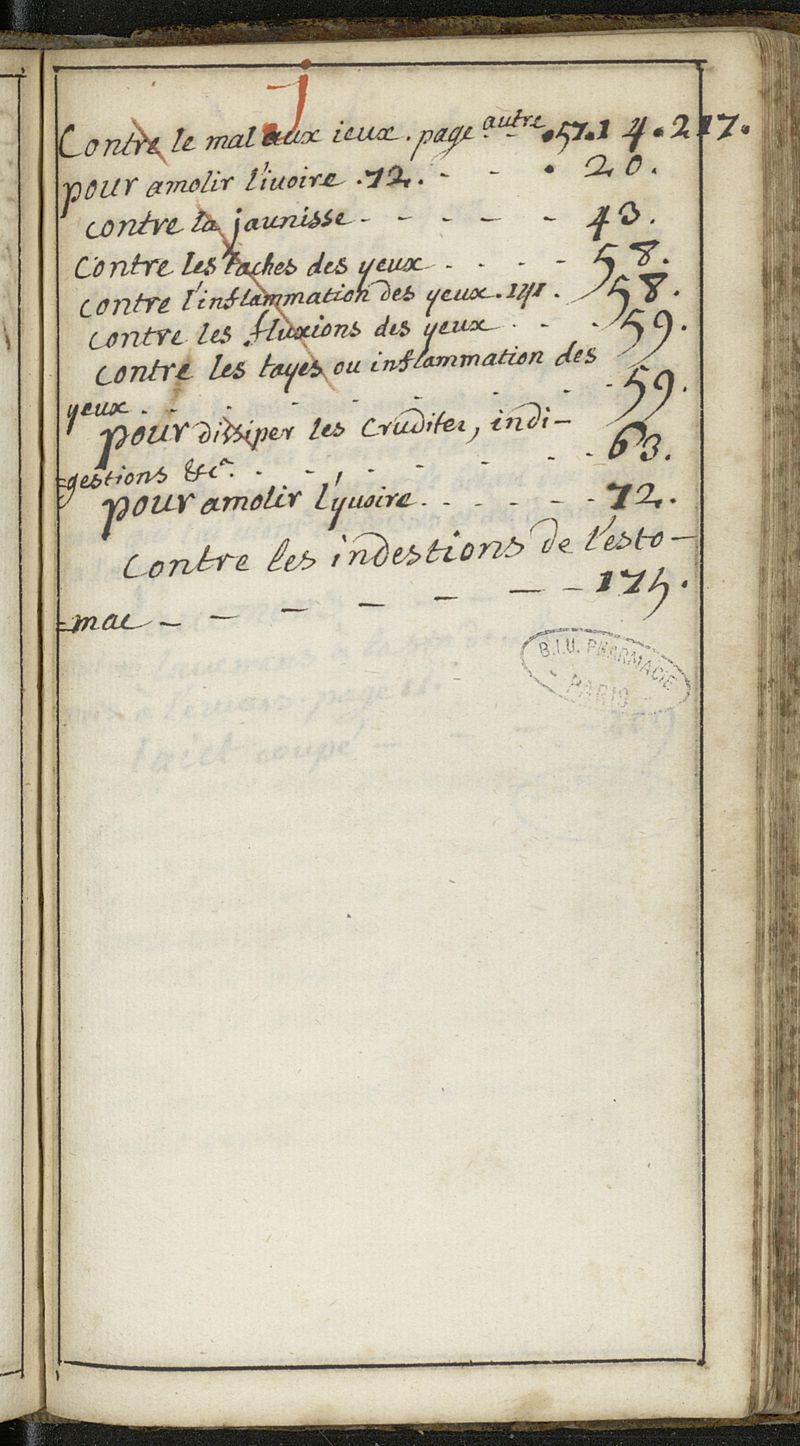 J
Contre le mal aux ieux. page autre .57.14.217.
pour amolir l'iuoire .72. - - . 20.
contre la jaunisse - - - - - 43.
Contre les taches des yeux - - - - 58.
contre l'inflammation des yeux. 191. 58.
contre les fluxions des yeux - - - 59.
contre les tayes ou inflammation des
yeux - - - - - - - 59.
pour dissiper les Crudites, indi-
gestions &c. - - - - - - - 63.
pour amolir l'yuoire - - - - - - 72.
Contre les indestions de l'esto-
mac - - - - - - - 175.
B.I.U. PHARMACIE
PARIS